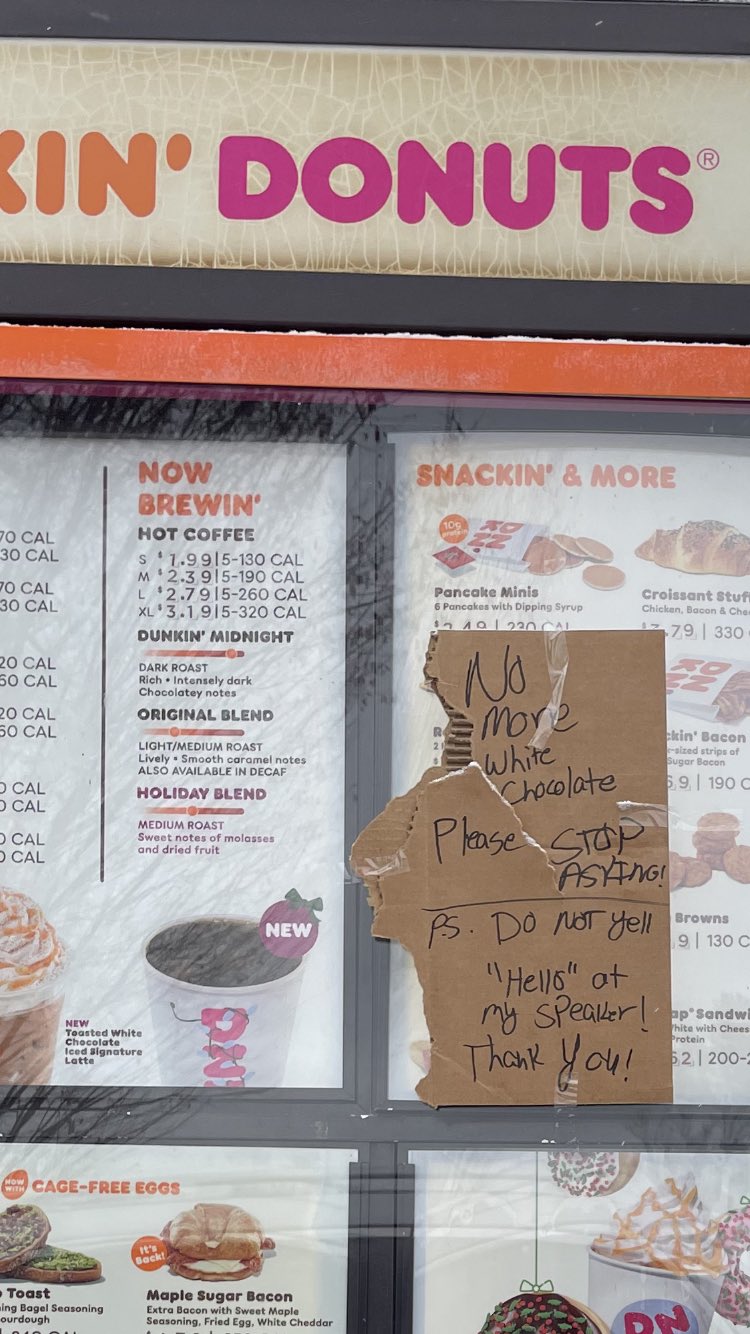 KIN' DONUTS®
70 CAL
30 CAL
70 CAL
30 CAL
20 CAL
60 CAL
20 CAL
60 CAL
0 CAL
0 CAL
0 CAL
0 CAL
NOW
BREWIN'
HOT COFFEE
S $1.99|5-130 CAL
M $2.39|5-190 CAL
L $2.79|5-260 CAL
XL $3.19|5-320 CAL
DUNKIN' MIDNIGHT
DARK ROAST
Rich • Intensely dark
Chocolatey notes
ORIGINAL BLEND
LIGHT/MEDIUM ROAST
Lively • Smooth caramel notes
ALSO AVAILABLE IN DECAF
HOLIDAY BLEND
MEDIUM ROAST
Sweet notes of molasses
and dried fruit
NEW
NEW
Toasted White
Chocolate
Iced Signature
Latte
SNACKIN' & MORE
10g
protein
Pancake Minis
6 Pancakes with Dipping Syrup
$2.49 | 230 CAL
Croissant Stuff
Chicken, Bacon & Chee
.79 | 330
No
More
White
Chocolate
Please STOP
ASKING!
P.S. DO NOT yell
"Hello" at
my speaker!
Thank You!
kin' Bacon
-sized strips of
Sugar Bacon
.9 | 190 C
Browns
9 | 130 C
ap® Sandwi
hite with Chees
Protein
.2 | 200-2
NOW
WITH
CAGE-FREE EGGS
It's
Back!
Toast
ing Bagel Seasoning
ourdough
Maple Sugar Bacon
Extra Bacon with Sweet Maple
Seasoning, Fried Egg, White Cheddar
DN